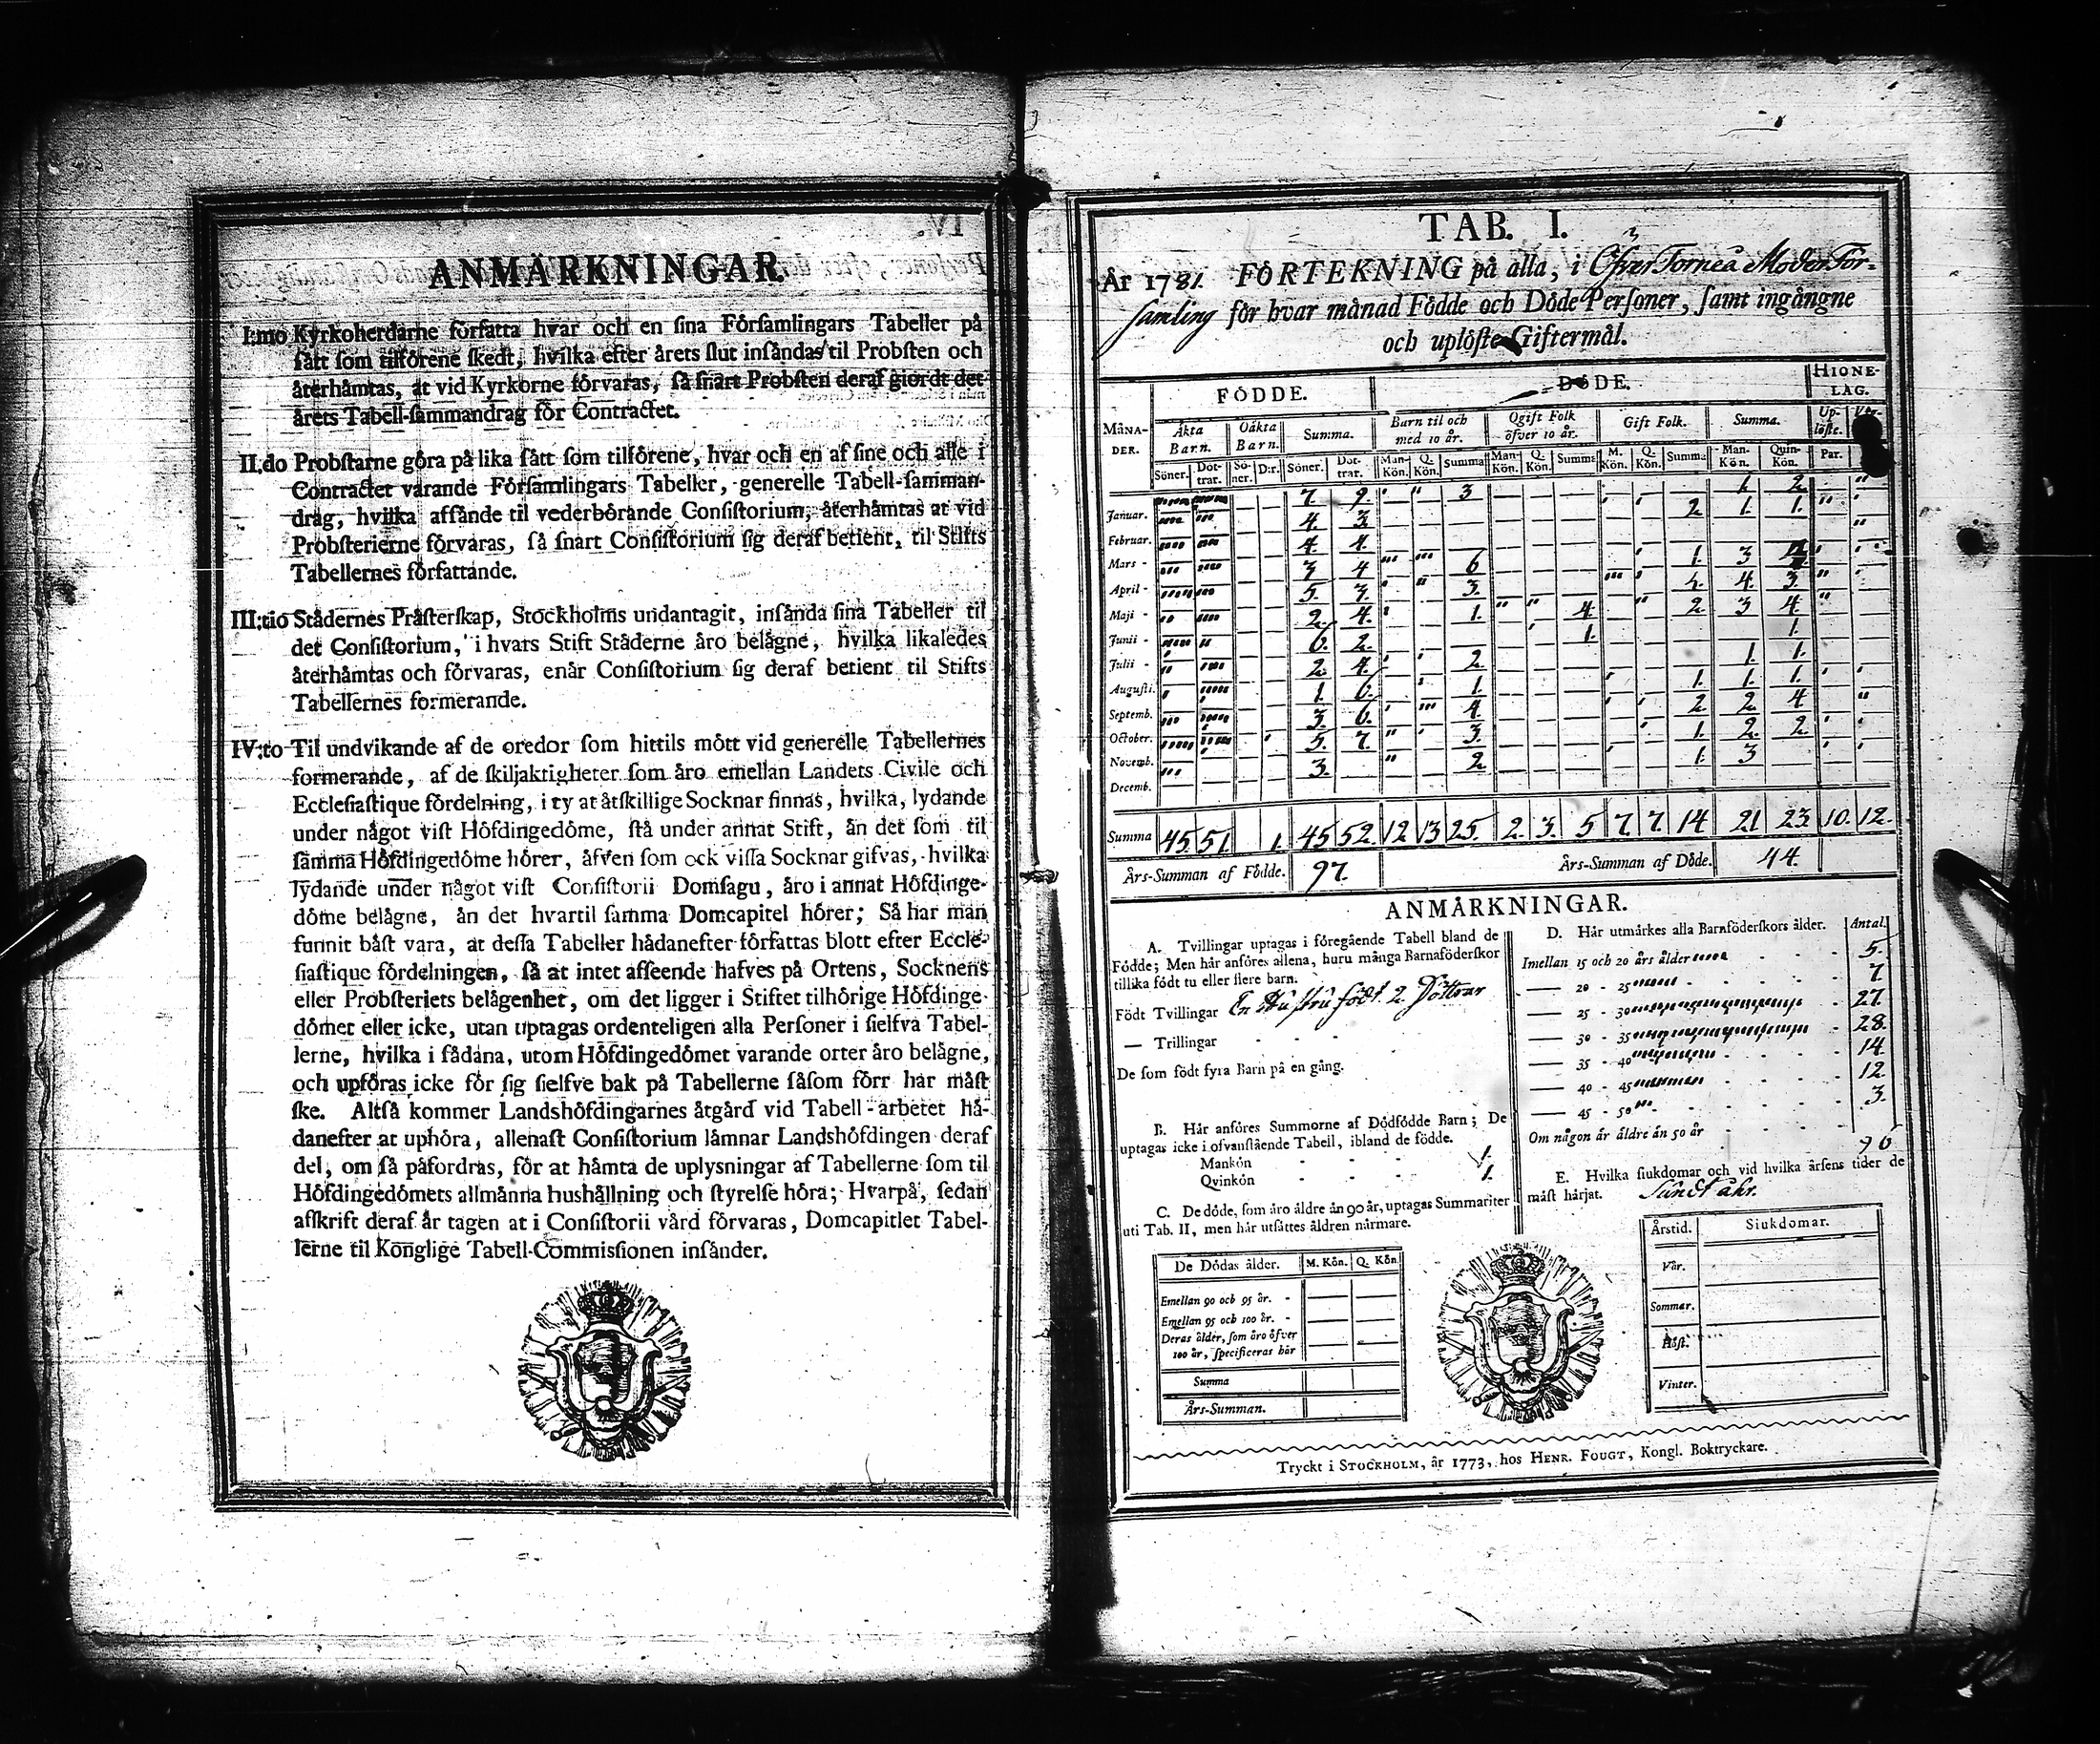 ANMÄRKNINGAR.
I:mo Kyrkoherdarne författa hvar och en sina Församlingars Tabeller på
sätt som tilförene skedt, hvilka efter årets slut insändas til Probsten och
återhämtas, at vid Kyrkorne förvaras, så snart Probsten deraf giordt det
årets Tabell-sammandrag för Contractet.
II:do Probstarne göra på lika sätt som tilförene, hvar och en af sine och alle i
Contractet varande Församlingars Tabeller, generelle Tabell-samman-
drag, hvilka affände til vederbörande Consistorium, återhämtas at vid
Probsterierne förvaras, så snart Consistorium sig deraf betient, til Stifts
Tabellernes författande.
III:tio Städernes Prästerskap, Stockholms undantagit, insända sina Tabeller til
det Consistorium, i hvars Stift Städerne äro belägne, hvilka likaledes
återhämtas och förvaras, enär Consistorium sig deraf betient til Stifts
Tabellernes formerande.
IV:to Til undvikande af de oredor som hittils mött vid generelle Tabellernes
formerande, af de skiljaktigheter som äro emellan Landets Civile och
Ecclesiastique fördelning, i ty at åtskillige Socknar finnas, hvilka, lydande
under något vist Höfdingedöme, stå under annat Stift, än det som til
samma Höfdingedöme hörer, äfven som ock vissa Socknar gifvas, hvilka
lydande under något vist Consistorii Domsagu, äro i annat Höfdinge-
döme belägne, än det hvartil samma Domcapitel hörer; Så har man
funnit bäst vara, at dessa Tabeller hädanefter författas blott efter Eccle-
siastique fördelningen, så at intet afseende hafves på Ortens, Socknens
eller Probsteriets belägenhet, om det ligger i Stiftet tilhörige Höfdinge-
dömet eller icke, utan uptagas ordenteligen alla Personer i sielfva Tabel-
lerne, hvilka i sådana, utom Höfdingedömet varande orter äro belägne,
och upföras icke för sig sielfve bak på Tabellerne såsom förr har måst
ske. Altså kommer Landshöfdingarnes åtgärd vid Tabell-arbetet hä-
danefter at uphöra, allenast Consistorium lämnar Landshöfdingen deraf
del, om så påfordras, för at hämta de uplysningar af Tabellerne som til
Höfdingedömets allmänna hushållning och styrelse höra; Hvarpå, sedan
afskrift deraf är tagen at i Consistorii vård förvaras, Domcapitlet Tabel-
lerne til Konglige Tabell-Commissionen insänder.
TAB. I.
År 1781. FÖRTEKNING på alla, i Öfver Torneå Moder För-
samling för hvar månad Födde och Döde Personer, samt ingångne
och uplöste Giftermål.
MÅNA-DER. FÖDDE. DÖDE. HIONE-LAG.
Äkta Barn. Oäkta Barn. Summa. Barn til och med 10 år. Ogift Folk öfver 10 år. Gift Folk. Summa. Up-löste.
Söner. Döt-trar. Sö-ner. D:r. Söner. Döt-trar. Man-Kön. Q. Kön. Summa Man-Kön. Q. Kön. Summa M. Kön. Q. Kön. Summa Man-Kön. Quin-Kön. Par.
Januar. 7. 9. 3 1. 2.
Februar. 4. 3. 2. 1. 1.
Mars 4. 4.
April 3 4 6 1. 3
Maji 5. 3. 3. 4. 3.
Junii 2. 4. 1. 4. 2. 3 4.
Julii 6. 2. 1. 1.
Augusti. 2. 4. 2. 1. 1.
Septemb. 1. 6. 1. 1. 1. 1.
October. 3. 6. 4. 2. 2. 4
Novemb. 5. 7. 3. 1. 2. 2.
Decemb. 3. 2 1. 3
Summa 45 51. 1. 45 52. 12 13 25. 2. 3. 5 7. 7. 14 21 23. 10. 12.
Års-Summan af Födde. 97. Års-Summan af Döde. 44.
ANMÄRKNINGAR.
A. Tvillingar uptagas i föregående Tabell bland de
Födde; Men här anföres allena, huru många Barnaföderskor
tillika födt tu eller flere barn.
Födt Tvillingar En Hustru födt 2 Döttrar
— Trillingar
De som födt fyra Barn på en gång.
B. Här anföres Summorne af Dödfödde Barn; De
uptagas icke i ofvanstående Tabell, ibland de födde.
Mankön 1.
Qvinkön 1.
C. De döde, som äro äldre än 90 år, uptagas Summariter
uti Tab. II, men här utsättes åldren närmare.
De Dödas ålder. M. Kön. Q. Kön.
Emellan 90 och 95 år.
Emellan 95 och 100 år.
Deras ålder, som äro öfver
100 år, specificeras här
Summa
Års-Summan.
D. Här utmärkes alla Barnföderskors ålder. Antal.
Imellan 15 och 20 års ålder 5.
— 20 - 25 7
— 25 - 30 27.
— 30 - 35 28.
— 35 - 40 14.
— 40 - 45 12.
— 45 - 50 3.
Om någon är äldre än 50 år
96
E. Hvilka siukdomar och vid hvilka årsens tider de
mäst härjat. Sundt åhr.
Årstid. Siukdomar.
Vår.
Sommar.
Höst.
Vinter.
Tryckt i STOCKHOLM, år 1773, hos HENR. FOUGT, Kongl. Boktryckare.